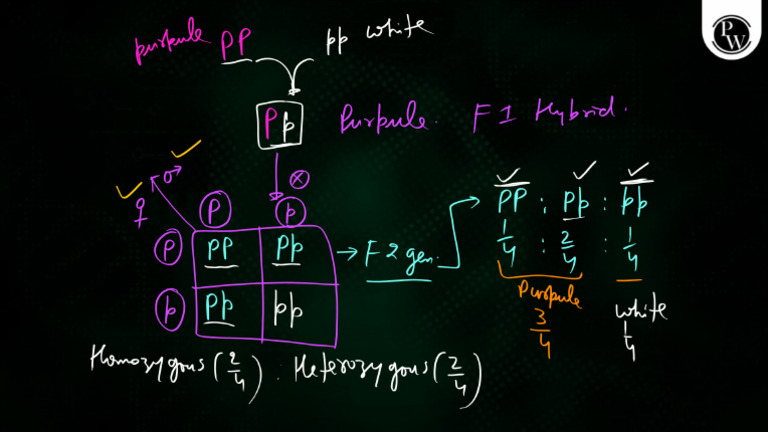 purpule PP pp white
PW
Pp Purpule. F1 Hybrid.
⊗
♀ ♂
P p
P PP Pp → F2 gen. PP : Pp : pp
1/4 : 2/4 : 1/4
p Pp pp
Purpule white
3/4 1/4
Homozygous (2/4) : Heterozygous (2/4)